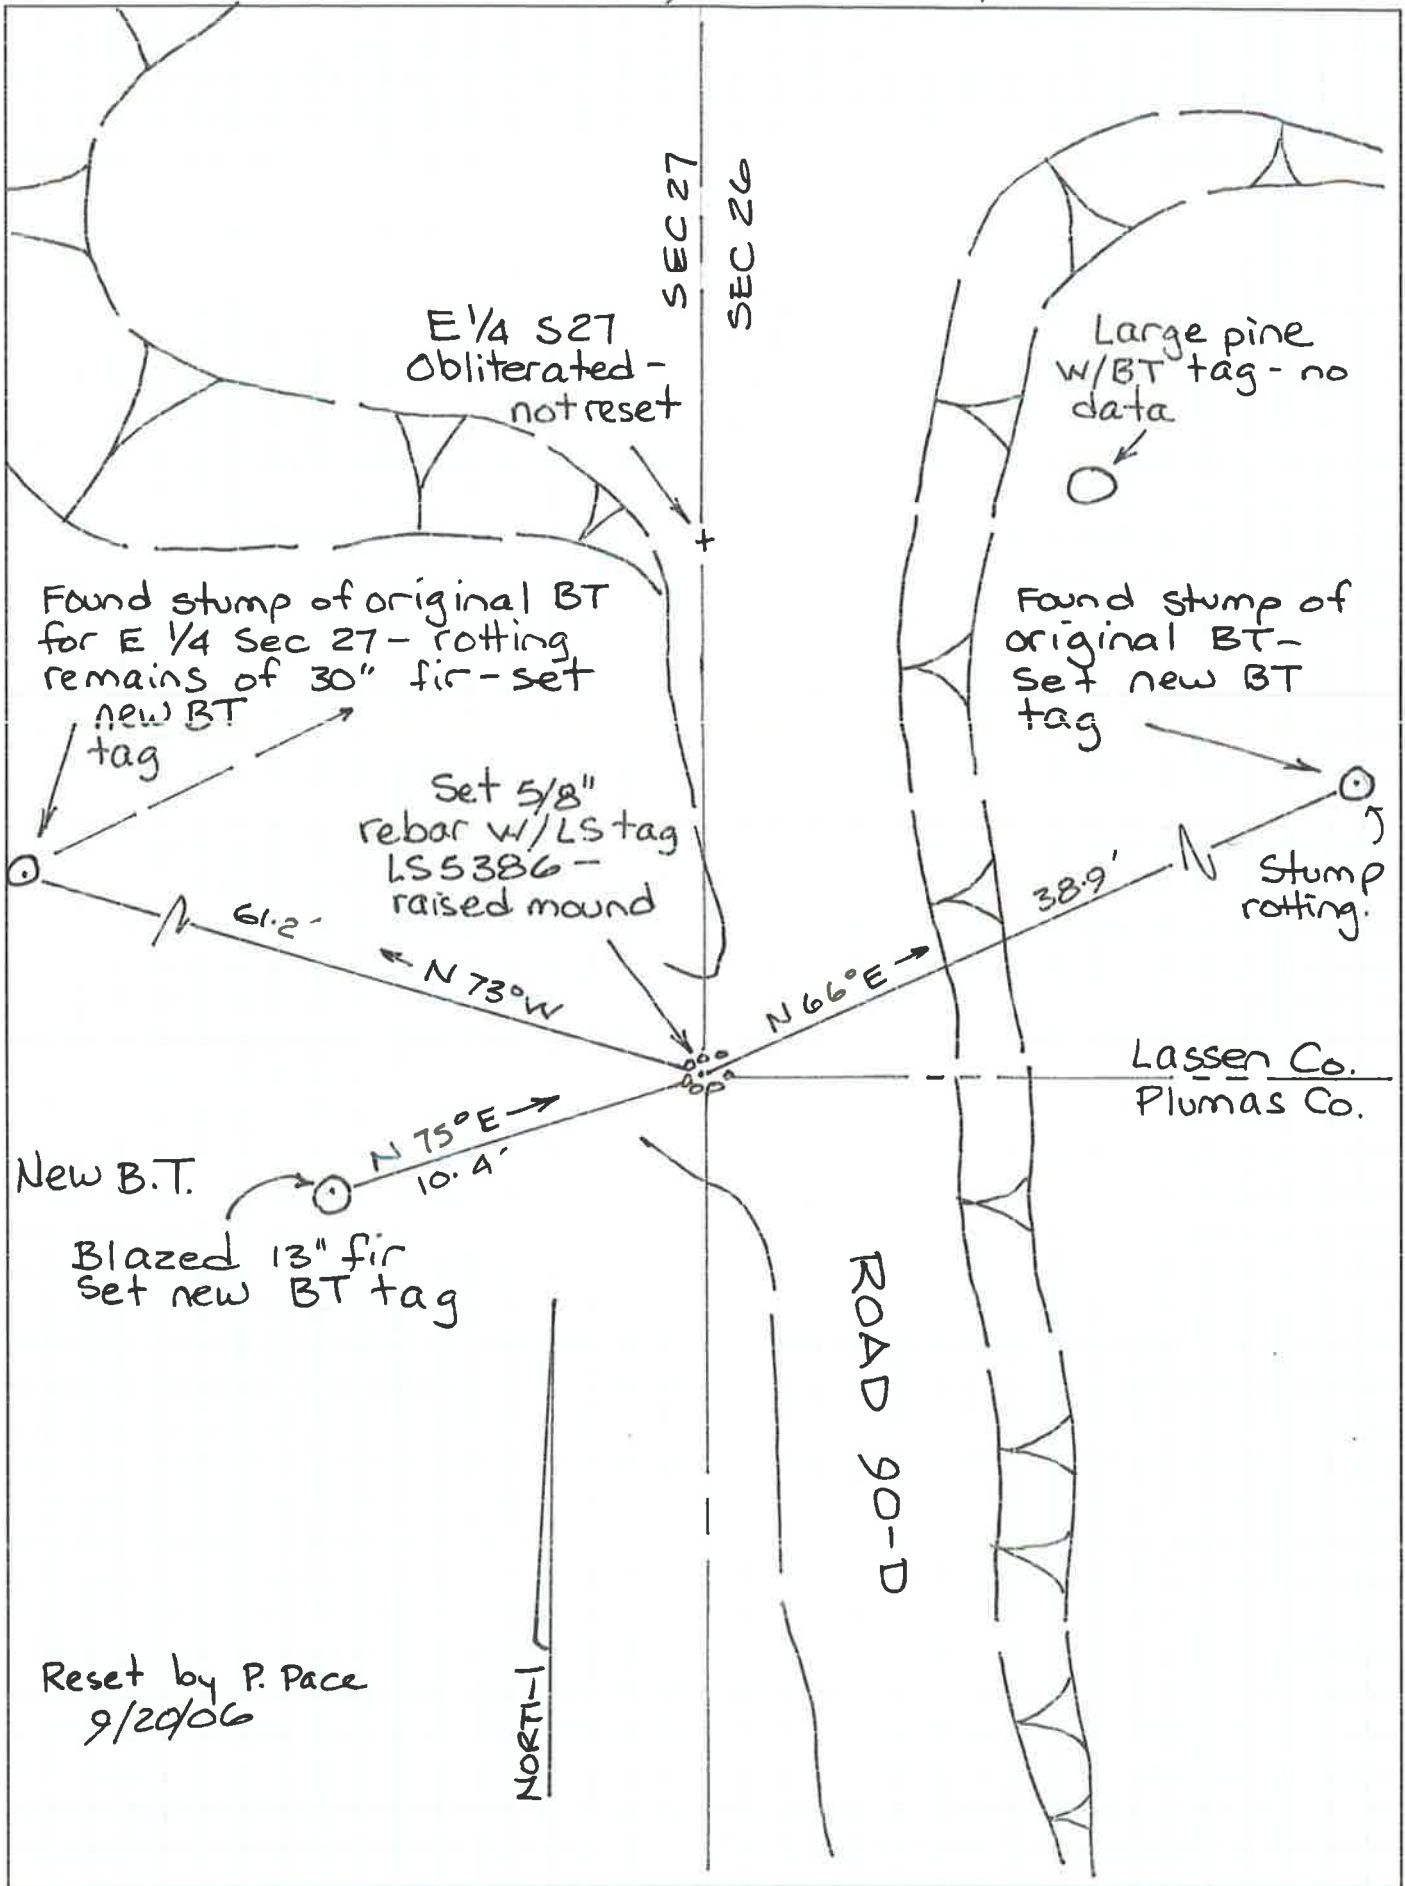 SEC 27
SEC 26
E 1/4 S27
Obliterated -
not reset
Large pine
W/BT tag - no
data
Found stump of original BT
for E 1/4 Sec 27 - rotting
remains of 30" fir - set
new BT
tag
Found stump of
original BT-
Set new BT
tag
Set 5/8"
rebar w/LS tag
LS5386 -
raised mound
Stump
rotting.
61.2'
N 73° W
38.9'
N 66° E
Lassen Co.
Plumas Co.
N 75° E
10.4'
New B.T.
Blazed 13" fir
Set new BT tag
ROAD 90-D
NORTH
Reset by P. Pace
9/20/06